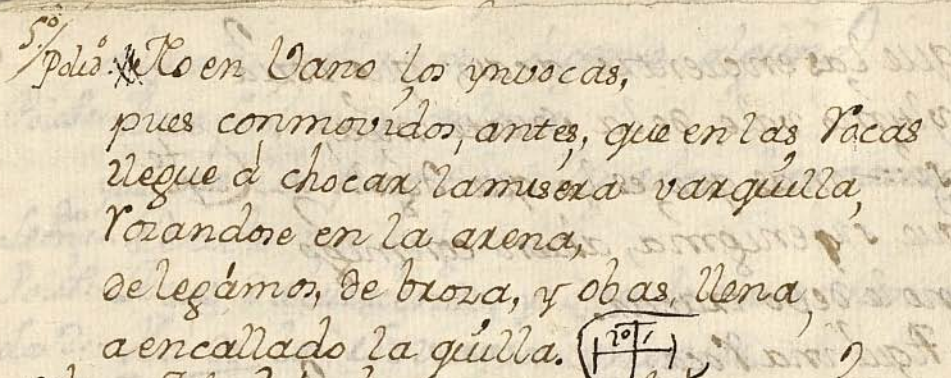 5º/
Polidº. No en Vano los ynvocas,
pues conmovidos, antes, que en las Rocas
llegue à chocar lamisera varquilla,
Rozandose en la arena,
de legamos, de broza, y obas, llena,
a encallado la quilla.